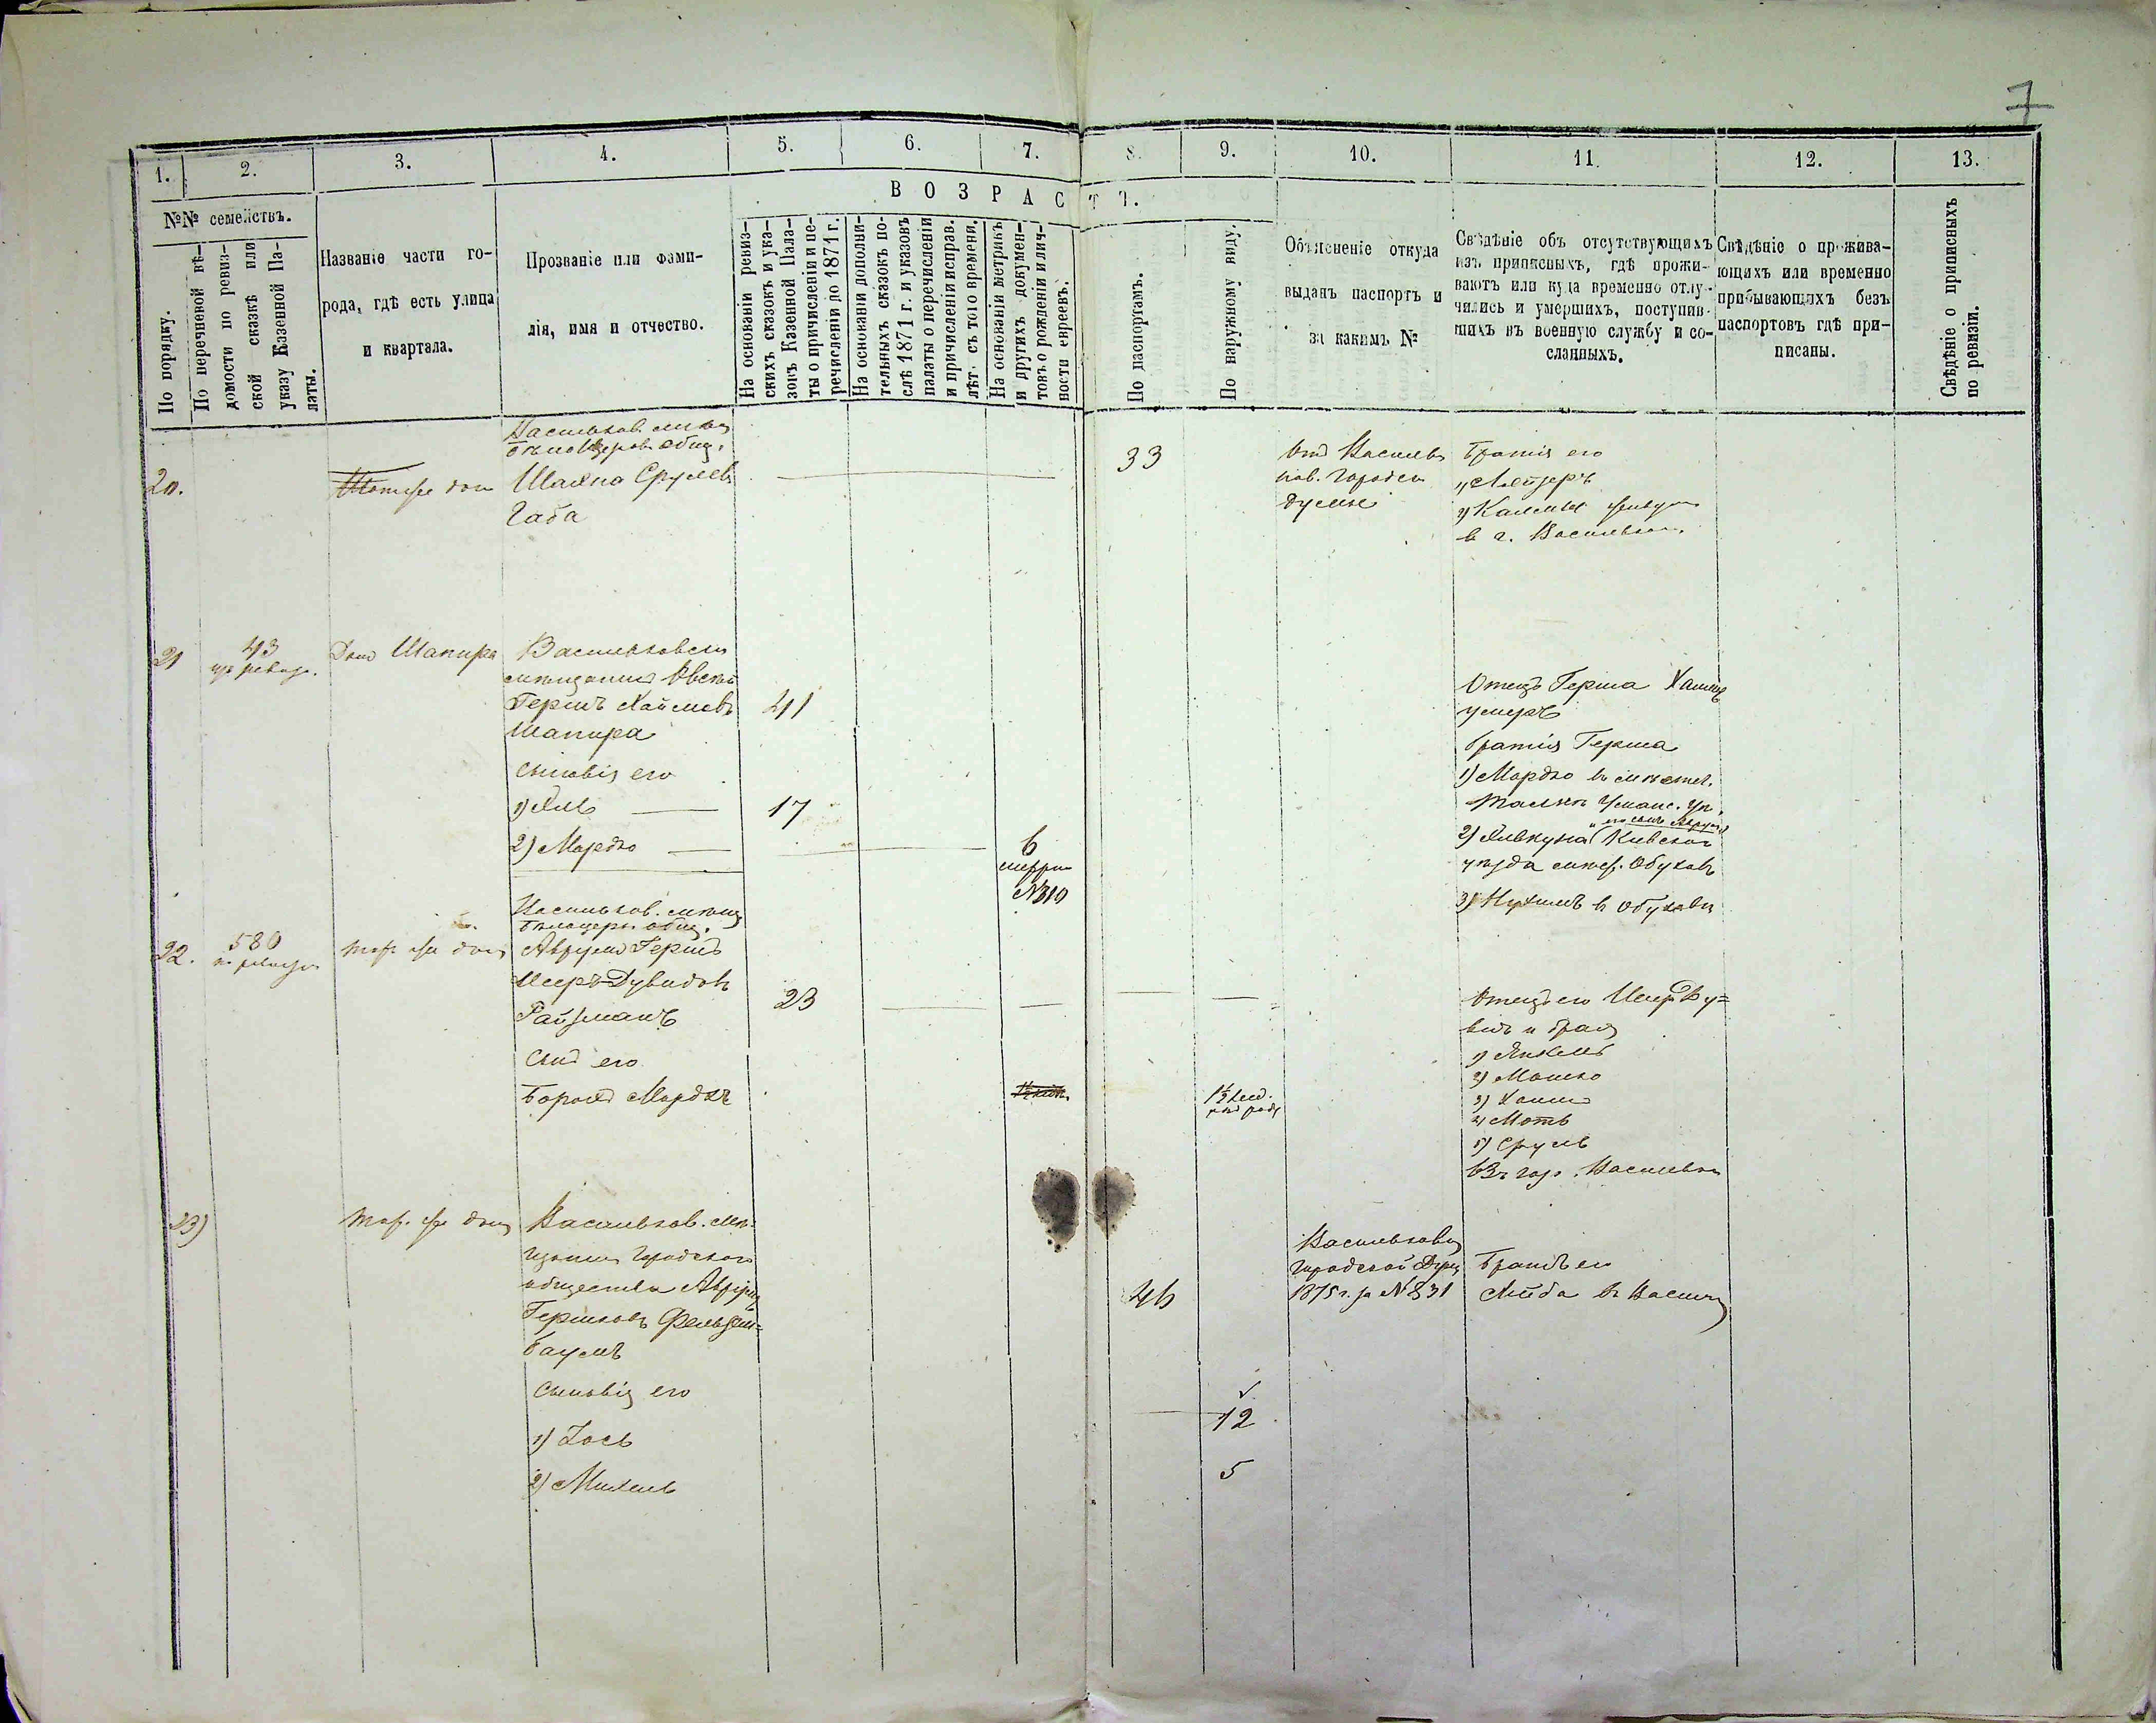 7
1. 2. 3. 4. 5. 6. 7. 8. 9. 10. 11. 12. 13.
№№ семействъ.
По порядку.
По перечневой вѣ-
домости по ревиз-
ской сказкѣ или
указу Казенной Па-
латы.
Названіе части го-
рода, гдѣ есть улица
и квартала.
Прозваніе или фами-
лія, имя и отчество.
ВОЗРАСТЪ.
На основаніи ревиз-
скихъ сказокъ и ука-
зокъ Казенной Пала-
ты о причисленіи и пе-
речисленіи до 1871 г.
На основаніи дополни-
тельныхъ сказокъ по-
слѣ 1871 г. и указовъ
палаты о перечисленіи
и причисленіи исправ.
лѣт. съ того времени.
На основаніи метрикъ
и другихъ докумен-
товъ о рожденіи и лич-
ности евреевъ.
По паспортамъ.
По наружному виду.
Объясненіе откуда
выданъ паспортъ и
за какимъ №
Свѣдѣніе объ отсутствующихъ
изъ приписныхъ, гдѣ прожи-
ваютъ или куда временно отлу-
чились и умершихъ, поступив-
шихъ въ военную службу и со-
сланныхъ.
Свѣдѣніе о прожива-
ющихъ или временно
прибывающихъ безъ
паспортовъ гдѣ при-
писаны.
Свѣдѣніе о приписныхъ
по ревизіи.
20.
Васильков. мѣщ
Бѣлоцерков. общ.
Шаяна Срулевъ
Габа
33
Отъ Василь
ков. Городск
Думы
Братія его
1) Лейзеръ
2) Кальма живут
в г. Васильков.
21
43
Домъ Шапира
Васильковск
мѣщанинъ
Гершъ Хаймовъ
Шапира
41
сыновія его
1) Эль 17
2) Мордко 6
метри
№310
Отецъ Герша Хаимъ
умеръ
братія Герша
1) Мордко въ мѣстеч.
Тальномъ Уманс. Уѣ.
2) Элькуна (Кіевског
уѣзда мѣст. Обухов
3) Нухимъ в Обухова
22.
580
по ревиз
Васильков. мѣщ
Бѣлоцерк. общ.
Аврумъ Гершъ
Исеръ-Дувидовъ
Райзманъ
23
сынъ его
Борохъ Мордко
1½
Отецъ его Исеръ Ду=
видъ и братія
1) Янкель
2) Мошко
3) Хаимъ
4) Моть
5) Сруль
въ гор. Васильков
23)
Васильков. мѣ-
щанинъ городского
общества Аврумъ
Гершковъ Фельдш=
баумъ
46
Васильковск
городской Думы
1875 г. за №831
Братъ его
Лейба въ Васильк
сыновія его
1) Іось
12
2) Михель
5